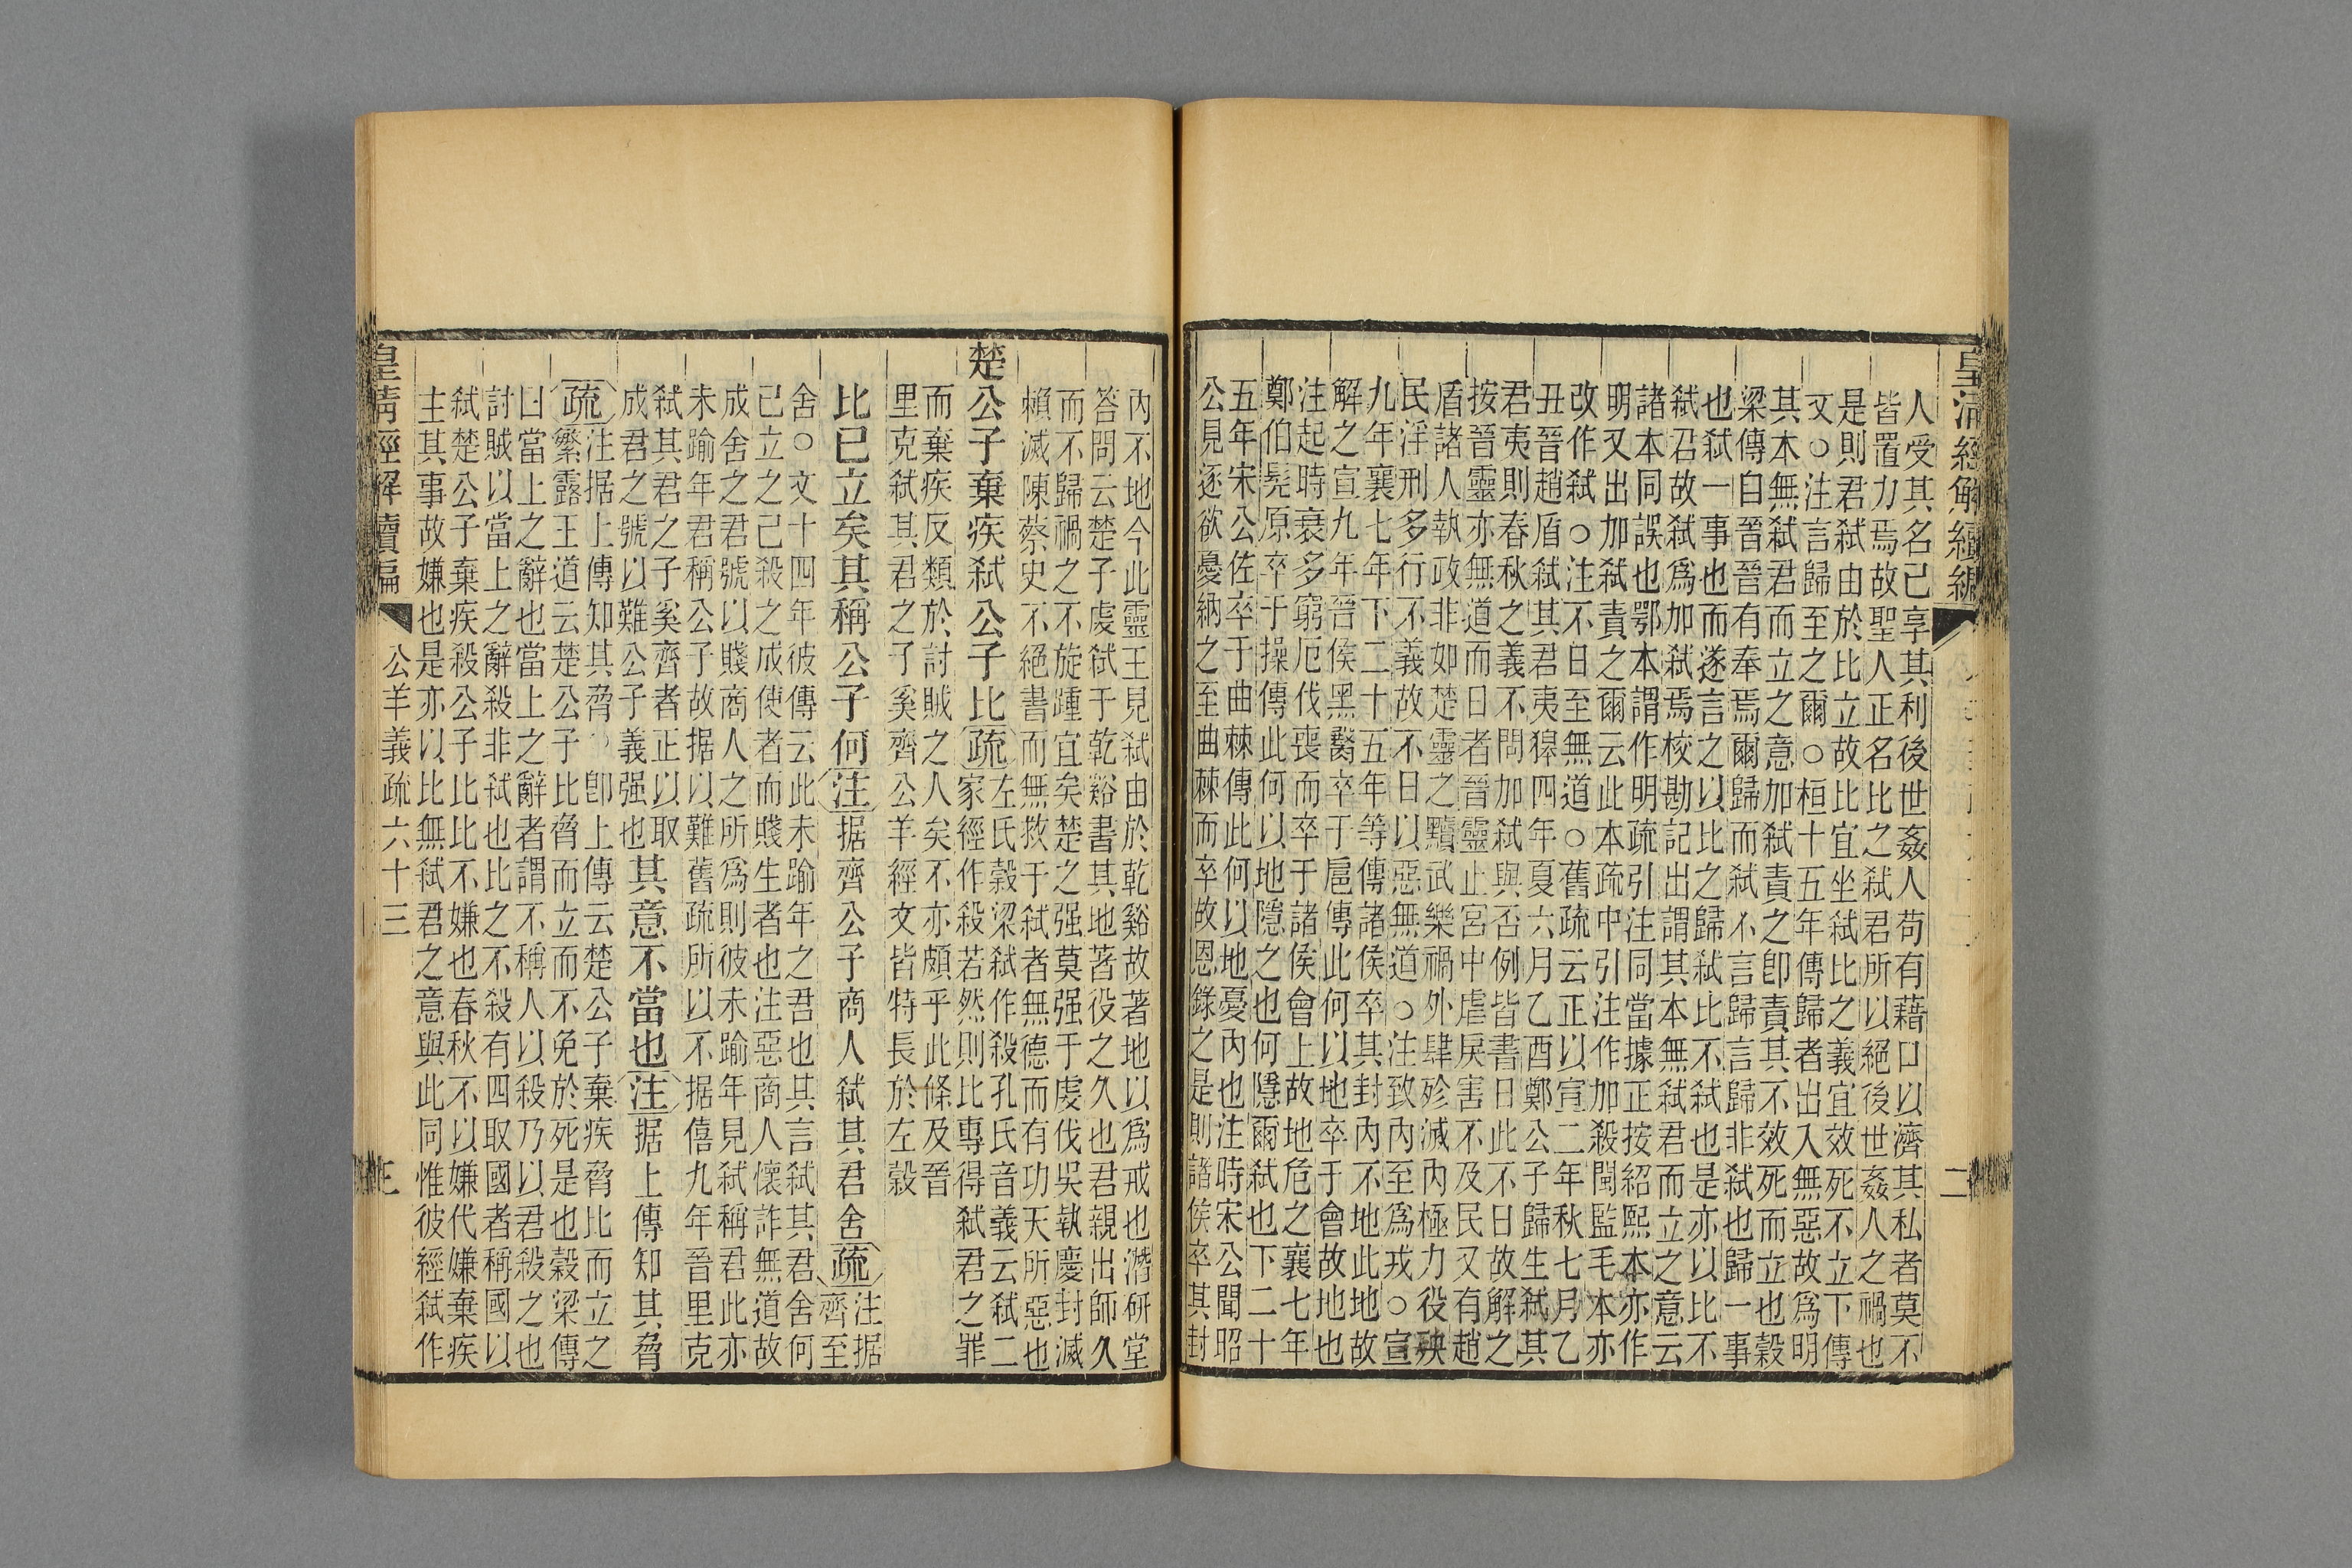 皇清經解續編
二
人受其名己享其利後世姦人苟有藉口以濟其私者莫不
皆置力焉故聖人正名比之弑君所以絕後世姦人之禍也
是則君弑由於比立故比宜坐弑比之義宜效死不立下傳
文○注言歸至之爾○桓十五年傳歸者出入無惡故爲明
其本無弑君而立之意加弑責之卽責其不效死而立也榖
梁傳自晉晉有奉焉爾歸而弑不言歸言歸非弑也歸一事
也弑一事也而遂言之以比之歸弑比不弑也是亦以比不
弑君故弑爲加弑焉校勘記出謂其本無弑君而立之意云
諸本同誤也鄂本謂作明疏引注同當據正按紹熙本亦作
明又出加弑責之爾云此本疏中引注作加殺閩監毛本亦
改作弑○注不日至無道○舊疏云正以宣二年秋七月乙
丑晉趙盾弑其君夷獔四年夏六月乙酉鄭公子歸生弑其
君夷則春秋之義不問加弑與否例皆書日此不日故解之
按晉靈亦無道而日者晉靈止宮中虐戾害不及民又有趙
盾諸人執政非如楚靈之黷武樂禍外肆殄滅內極力役殃
民浮刑多行不義故不日以惡無道○注致內至爲戎○宣
九年襄七年下二十五年等傳諸侯卒其封內不地此地故
解之宣九年晉侯黑臋卒于扈傳此何以地卒于會故地也
注起時衰多窮厄伐喪而卒于諸侯會上故地危之襄七年
鄭伯髡原卒于操傳此何以地隱之也何隱爾弑也下二十
五年宋公佐卒于曲棘傳此何以地憂內也注時宋公聞昭
公見逐欲憂納之至曲棘而卒故恩錄之是則諸侯卒其封
內不地今此靈王見弑由於乾谿故著地以爲戒也濳研堂
答問云楚子虔弑于乾谿書其地著役之久也君親出師久
而不歸禍之不旋踵宜矣楚之强莫强于虔伐吳執慶封滅
賴滅陳蔡史不絕書而無救于弑者無德而有功天所惡也
楚公子棄疾弑公子比疏
左氏榖梁弑作殺孔氏音義云弑二
家經作殺若然則比專得弑君之罪
而棄疾反類於討賊之人矣不亦頗乎此條及晉
里克弑其君之子奚齊公羊經文皆特長於左榖
比已立矣其稱公子何注据齊公子商人弑其君舍疏
注据
齊至
舍○文十四年彼傳云此未踰年之君也其言弑其君舍何
已立之己殺之成使者而賤生者也注惡商人懷詐無道故
成舍之君號以賤商人之所爲則彼未踰年見弑稱君此亦
未踰年君稱公子故据以難舊疏所以不据僖九年晉里克
弑其君之子奚齊者正以取
成君之號以難公子義强也
其意不當也注据上傳知其脅
疏
注据上傳知其脅○卽上傳云楚公子棄疾脅比而立之
繁露王道云楚公子比脅而立而不免於死是也榖梁傳
曰當上之辭也當上之辭者謂不稱人以殺乃以君殺之也
討賊以當上之辭殺非弑也比之不殺有四取國者稱國以
弑楚公子棄疾殺公子比比不嫌也春秋不以嫌代嫌棄疾
主其事故嫌也是亦以比無弑君之意與此同惟彼經弑作
皇清經解續編
公羊義疏六十三
三